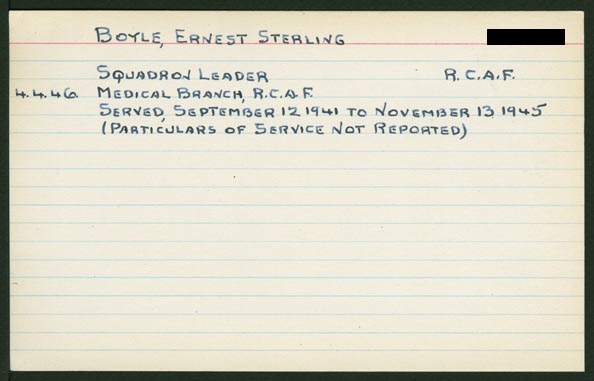 BOYLE, ERNEST STERLING
SQUADRON LEADER R.C.A.F.
4.4.46. MEDICAL BRANCH, R.C.A.F.
SERVED, SEPTEMBER 12 1941 TO NOVEMBER 13, 1945
(PARTICULARS OF SERVICE NOT REPORTED)